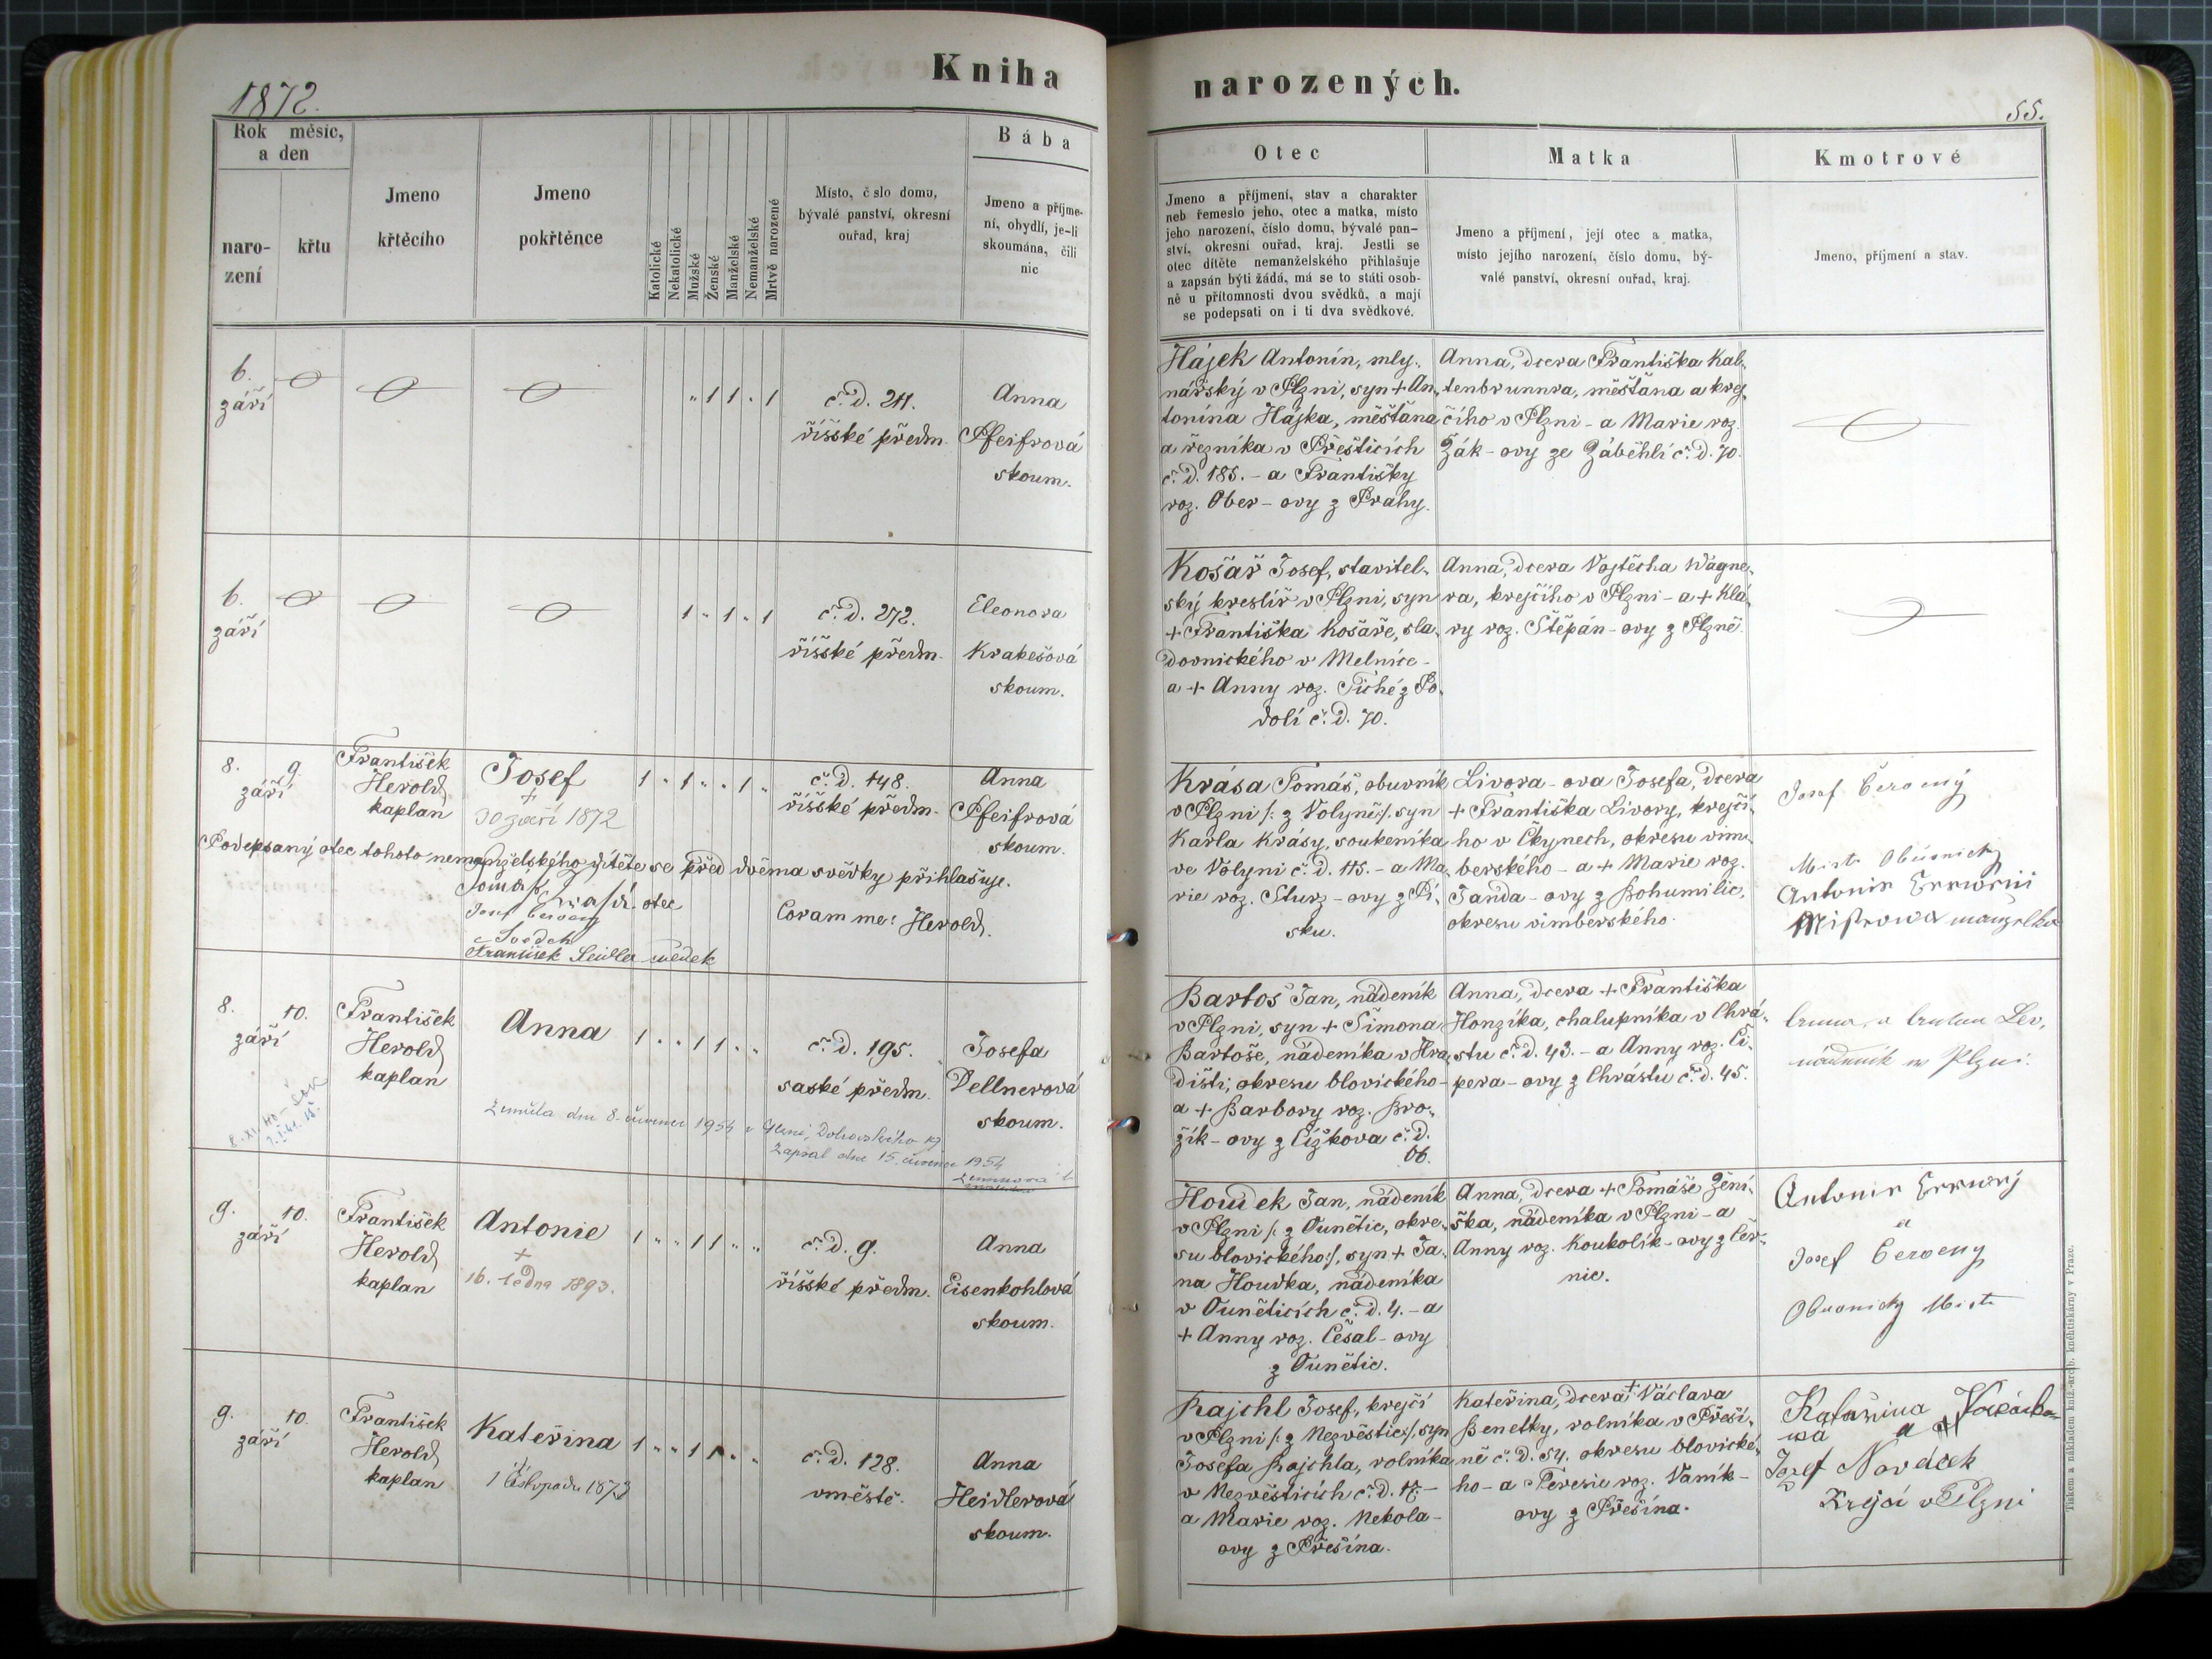 1872.
Kniha
Rok měsíc,
a den
naro-
zení
křtu
Jmeno
křtěcího
Jmeno
pokřtěnce
Katolické
Nekatolické
Mužské
Ženské
Manželské
Nemanželské
Mrtvě narozené
Místo, č slo domu,
bývalé panství, okresní
ouřad, kraj
Bába
Jmeno a příjme-
ní, obydlí, je-li
skoumána, čili
nic
6.
září
" 1 1 " 1
č. d. 211.
říšské předm.
Anna
Pfeifrová
skoum.
6.
září
1 " 1 " 1
č. d. 272.
říšské předm.
Eleonora
Krakešová
skoum.
8. 9.
září
František
Herold
kaplan
Josef
+
30 září 1872
1 " 1 " " 1 "
č. d. 148.
říšské předm.
Anna
Pfeifrová
skoum.
Podepsaný otec tohoto nemanželského dítěte se před dvěma svědky přihlašuje.
Tomáš Krasa. otec
Josef Červený
Svědek
František Seidler svědek
Coram me: Herold.
8. 10.
září
František
Herold
kaplan
Anna
1 " " 1 1 " "
č. d. 195.
saské předm.
Josefa
Dellnerová
skoum.
Zemřela dne 8. července 1954 v Plzni,
Zapsal dne 15. července 1954
9. 10.
září
František
Herold
kaplan
Antonie
+
16. ledna 1893.
1 " " 1 1 " "
č. d. 9.
říšské předm.
Anna
Eisenkohlová
skoum.
9. 10.
září
František
Herold
kaplan
Kateřina
1 listopadu 1872
1 " " 1 1 " "
č. d. 128.
vměstě.
Anna
Heidlerová
skoum.
narozených.
55.
Otec
Jmeno a příjmení, stav a charakter
neb řemeslo jeho, otec a matka, místo
jeho narození, číslo domu, bývalé pan-
ství, okresní ouřad, kraj. Jestli se
otec dítěte nemanželského přihlašuje
a zapsán býti žádá, má se to státi osob-
ně u přítomnosti dvou svědků, a mají
se podepsati on i ti dva svědkové.
Matka
Jmeno a příjmení, její otec a matka,
místo jejího narození, číslo domu, bý-
valé panství, okresní ouřad, kraj.
Kmotrové
Jmeno, příjmení a stav.
Hájek Antonín, mly-
nářský v Plzni, syn + An-
tonína Hájka, měšťana
a řezníka v Přešticích
č. d. 185. - a Františky
roz. Ober - ovy z Prahy.
Anna, dcera Františka Kal-
tenbrunnra, měšťana a krej-
čího v Plzni - a Marie roz.
Žák - ovy ze Záběhlí č. d. 70.
Košař Josef, stavitel-
ský kreslíř v Plzni, syn
+ Františka Košaře, sla-
dovnického v Melníce -
a + Anny roz. Tiché z Po-
dolí č. d. 70.
Anna, dcera Vojtěcha Wágne-
ra, krejčího v Plzni - a + Klá-
ry roz. Štěpán - ovy z Plzně.
Krása Tomáš, obuvník
v Plzni /: z Volyně :/, syn
Karla Krásy, soukeníka
ve Volyni č. d. 115. - a Ma-
rie roz. Sturz - ovy z Pí-
sku.
Livora - ova Josefa, dcera
+ Františka Livory, krejčí-
ho v Čkynech, okresu vim-
berského - a + Marie roz.
Janda - ovy z Bohumilic,
okresu vimberského.
Josef Červený
Mistr Obuvnický
Antonie Červený
Mistrowa manzelka
Bartoš Jan, nádeník
v Plzni, syn + Šimona
Bartoše, nádeníka v Hra-
dišti, okresu blovického -
a + Barbory roz. Bro-
žík - ovy z Čížkova č. d.
66.
Anna, dcera + Františka
Honzíka, chalupníka v Chrá-
stu č. d. 43. - a Anny roz. Ci-
pera - ovy z Chrástu č. d. 45.
Lev,
nádeník v Plzni.
Houdek Jan, nádeník
v Plzni /: z Ounětic, okre-
su blovického :/, syn + Ja-
na Houdka, nádeníka
v Ouněticích č. d. 4. - a
+ Anny roz. Češal - ovy
z Ounětic.
Anna, dcera + Tomáše Žení-
ška, nádeníka v Plzni - a
Anny roz. Koukolík - ovy z Čer-
nic.
Antonie Červený
a
Josef Červený
Obuvnický Mistr
Rajchl Josef, krejčí
v Plzni /: z Nezvěstic :/, syn
Josefa Rajchla, rolníka
v Nezvěsticích č. d. 17. -
a Marie roz. Nekola -
ovy z Přešína.
Kateřina, dcera + Václava
Benetky, rolníka v Přeší-
ně č. d. 54. okresu blovické-
ho - a Teresie roz. Vaník -
ovy z Přešína.
Katařina Nováčko
wa a
Jozef Nováček
Krejčí v Plzni
Tiskem a nákladem kníž.-arcib. knihtiskárny v Praze.